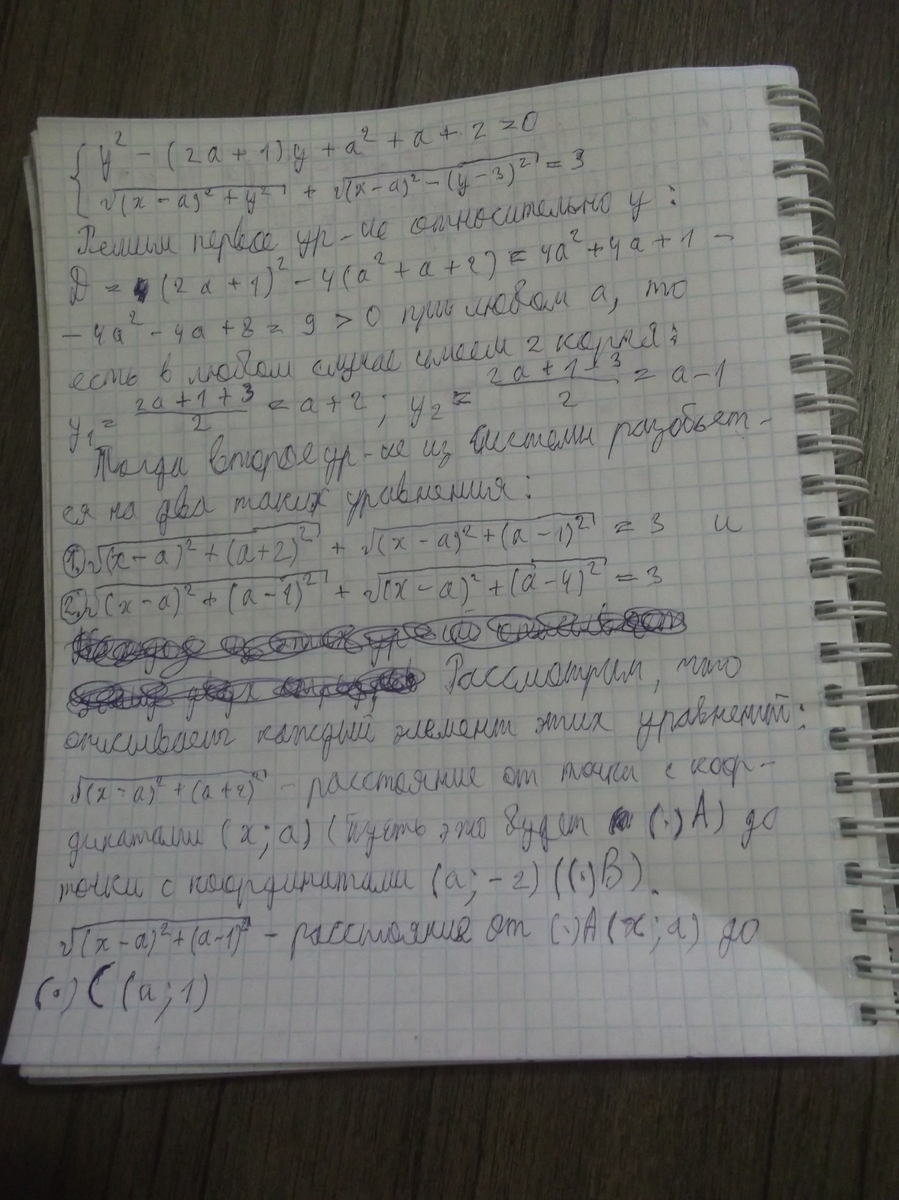 { y² - (2a + 1)y + a² + a + 2 = 0
√((x-a)² + y²) + √((x-a)² - (y-3)²) = 3
Решим первое ур-ие относительно y:
D = (2a + 1)² - 4(a² + a + 2) = 4a² + 4a + 1 -
- 4a² - 4a + 8 = 9 > 0 при любом a, то
есть в любом случае имеем 2 корня:
y₁ = (2a + 1 + 3)/2 = a + 2; y₂ = (2a + 1 - 3)/2 = a - 1
Тогда второе ур-ие из системы разобьёт-
ся на два таких уравнения:
1. √((x-a)² + (a+2)²) + √((x-a)² + (a-1)²) = 3 и
2. √((x-a)² + (a-1)²) + √((x-a)² + (a-4)²) = 3
Рассмотрим, что
описывает каждый элемент этих уравнений:
√((x-a)² + (a+2)²) - расстояние от точки с коор-
динатами (x; a) (пусть это будет (·) A) до
точки с координатами (a; -2) ((·)B).
√((x-a)² + (a-1)²) - расстояние от (·)A(x; a) до
(·) C (a; 1)